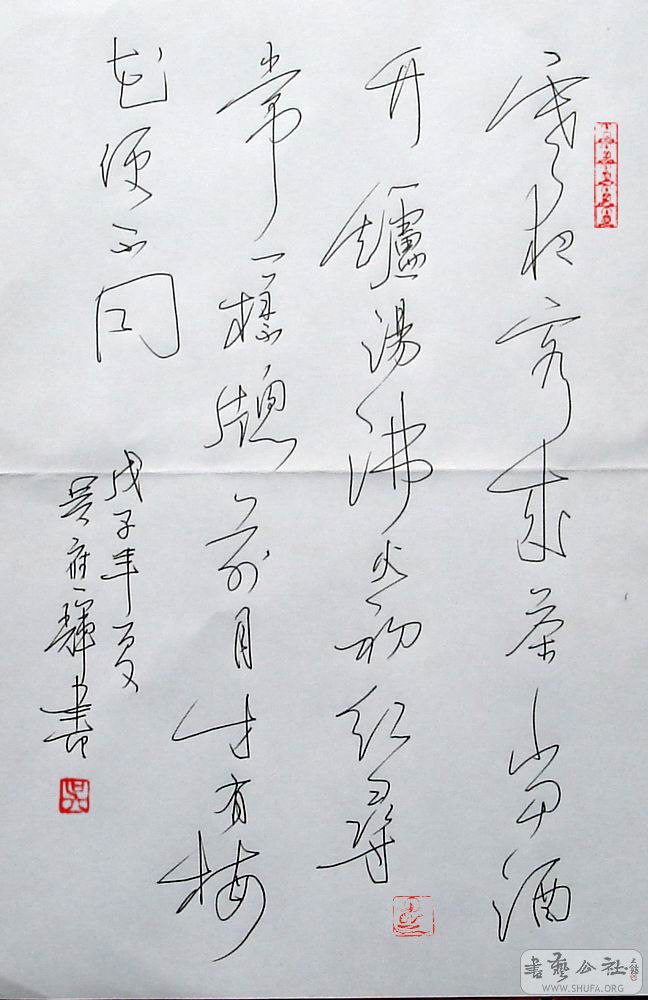 寒夜客來茶當酒
竹爐湯沸火初红尋
常一樣牕前月才有梅
花便不同
戊子年夏
吴府輝書
書藝公社
WWW.SHUFA.ORG